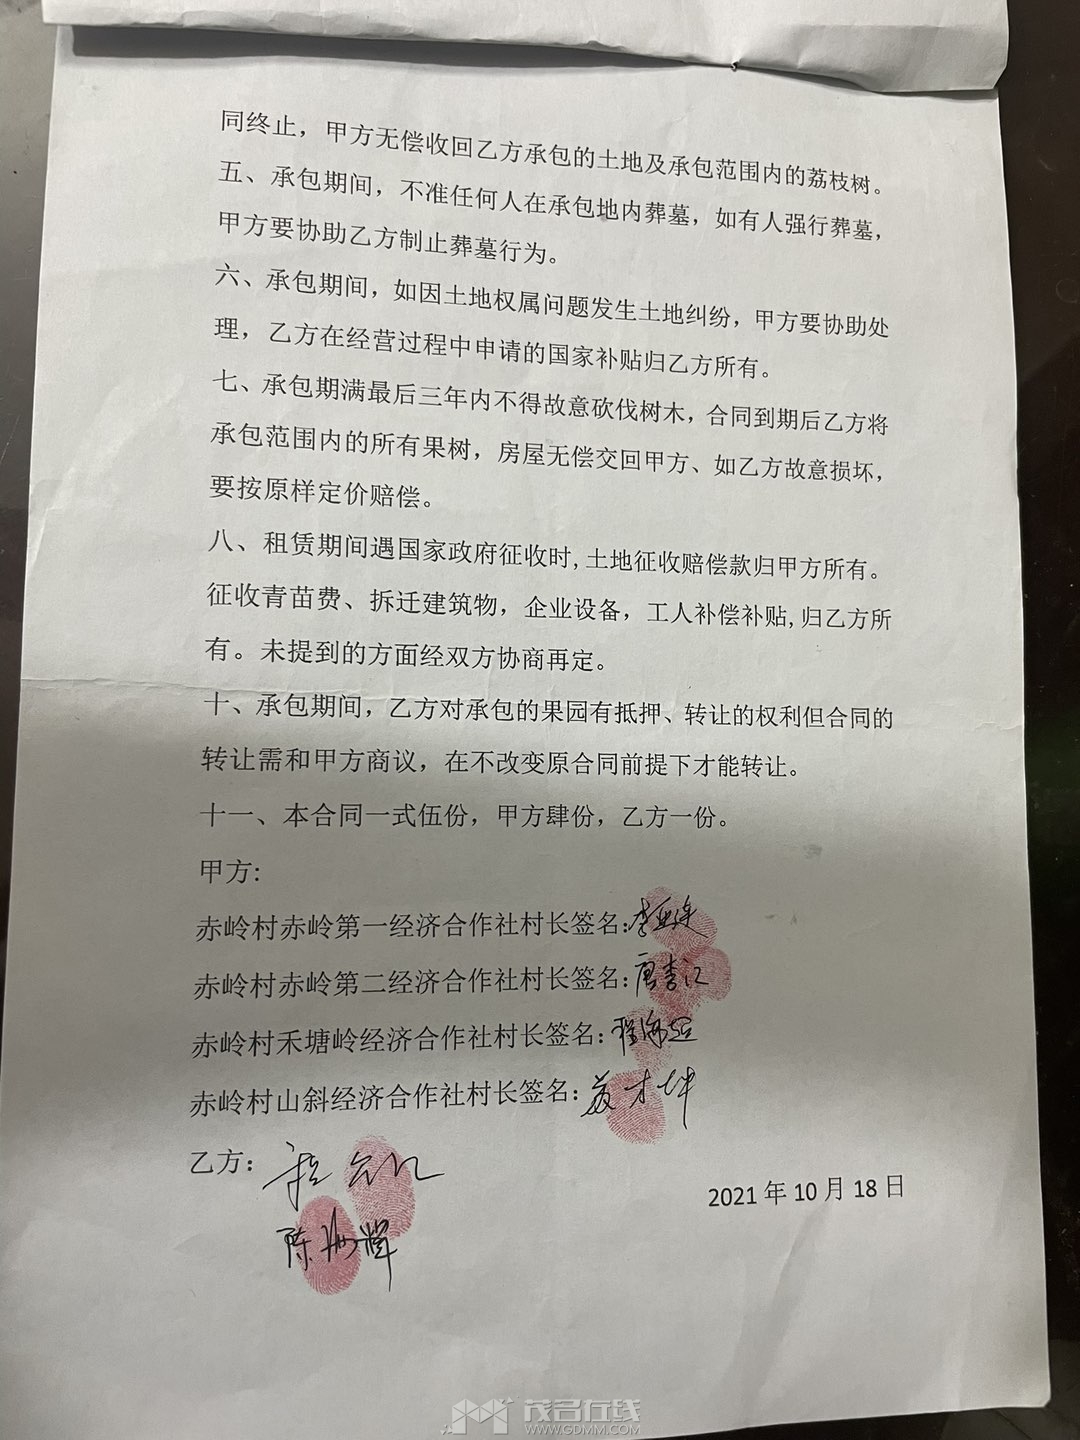 同终止，甲方无偿收回乙方承包的土地及承包范围内的荔枝树。
五、承包期间，不准任何人在承包地内葬墓，如有人强行葬墓，
甲方要协助乙方制止葬墓行为。
六、承包期间，如因土地权属问题发生土地纠纷，甲方要协助处
理，乙方在经营过程中申请的国家补贴归乙方所有。
七、承包期满最后三年内不得故意砍伐树木，合同到期后乙方将
承包范围内的所有果树，房屋无偿交回甲方、如乙方故意损坏，
要按原样定价赔偿。
八、租赁期间遇国家政府征收时,土地征收赔偿款归甲方所有。
征收青苗费、拆迁建筑物，企业设备，工人补偿补贴,归乙方所
有。未提到的方面经双方协商再定。
十、承包期间，乙方对承包的果园有抵押、转让的权利但合同的
转让需和甲方商议，在不改变原合同前提下才能转让。
十一、本合同一式伍份，甲方肆份，乙方一份。
甲方:
赤岭村赤岭第一经济合作社村长签名:李亚连
赤岭村赤岭第二经济合作社村长签名:唐李江
赤岭村禾塘岭经济合作社村长签名:程海
赤岭村山斜经济合作社村长签名:才坤
乙方:
陈海辉
2021 年 10 月 18 日
茂名在线
WWW.GDMM.COM